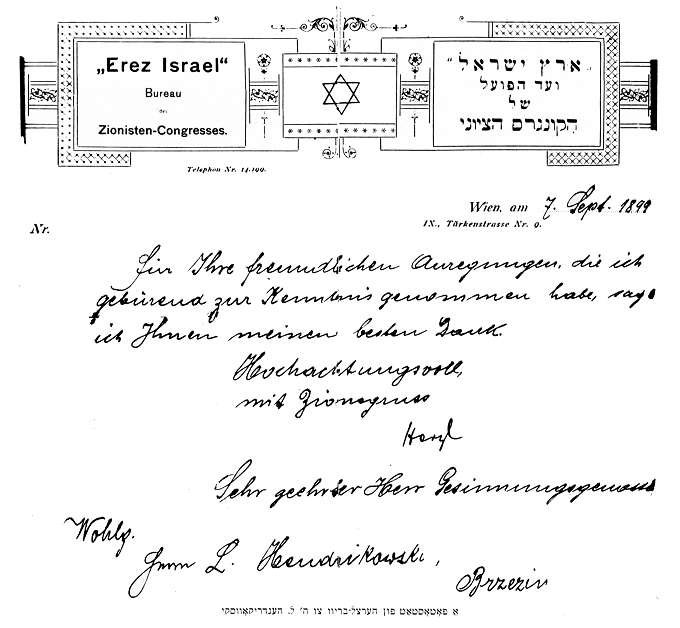 „Erez Israel“
Bureau
des
Zionisten-Congresses.
„ארץ ישראל“
ועד הפועל
של
הקונגרס הציוני
Telephon Nr. 14.199.
Wien, am 7. Sept. 1899
IX., Türkenstrasse Nr. 9.
Nr.
Für Ihre freundlichen Anregungen, die ich
gebürend zur Kenntnis genommen habe, sage
ich Ihnen meinen besten Dank.
Hochachtungsvoll,
mit Zionsgruss
Herzl
Sehr geehrter Herr Gesinnungsgenosse
Wohlg.
Herrn L. Hendrikowski,
Brzezin
א פאָטאָסטאַט פון הערצל־בריוו צו ה' ל. הענדריקאָווסקי